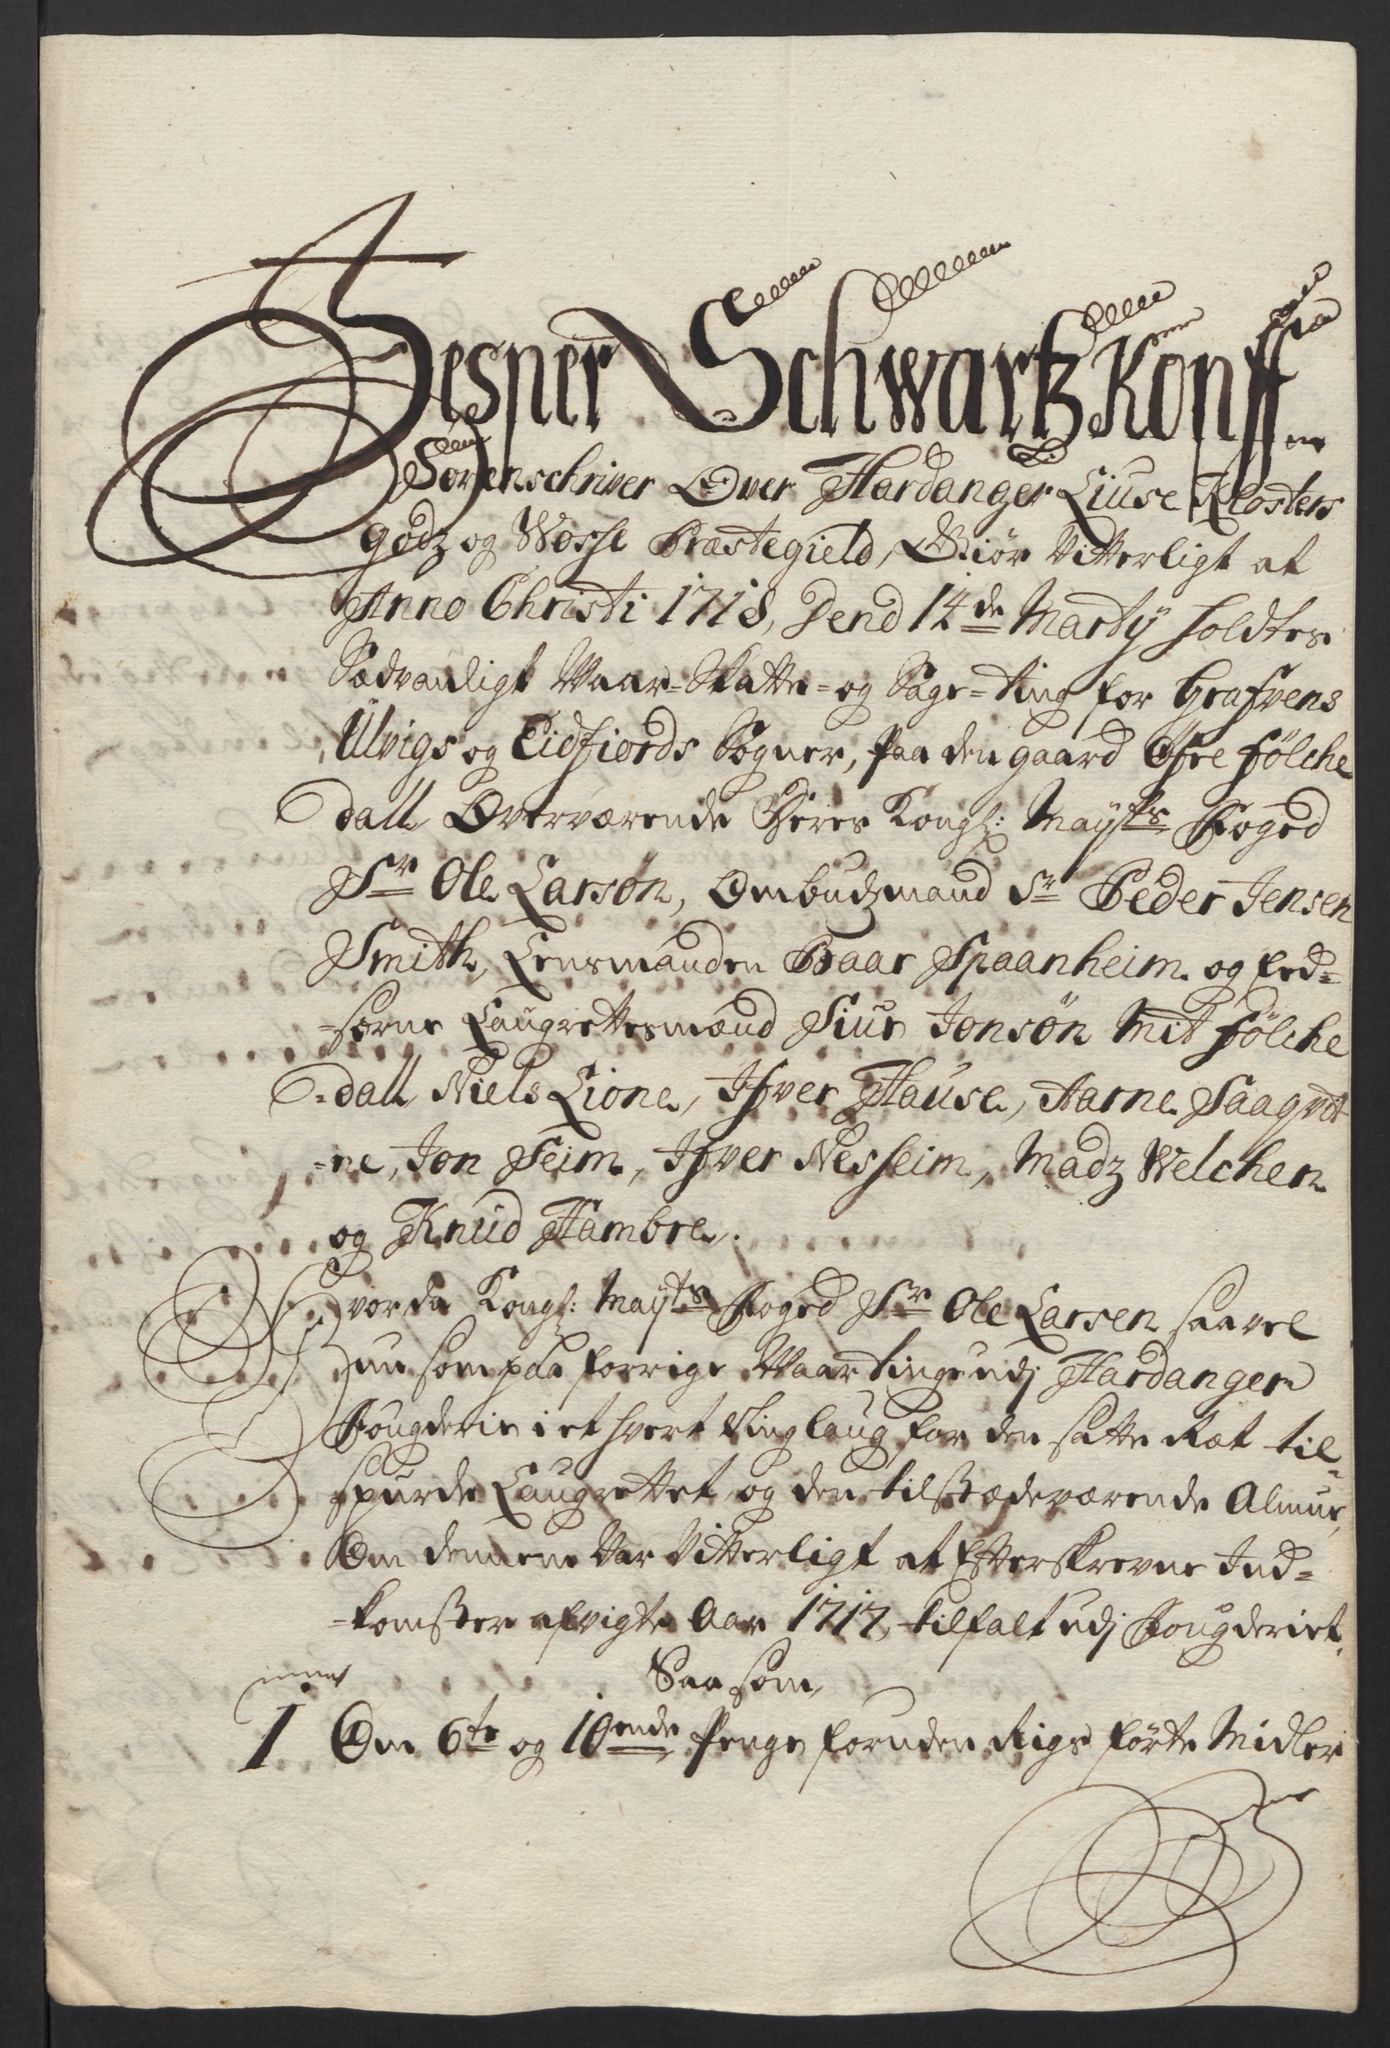 Jesper Schwartz Kopff
Sorenschriver Over Hardanger Liuse Klosters
godz og Wosse Præstegield, Giør Vitterligt at
Anno Christi 1718, Dend 14de Martÿ holdtes
Sædvanligt Waar-Skatte- og Sage-ting for Grafvens
Ülvigs og Eidfiords Sogner, paa den gaard Øfre Fölche
dall Overværende Deres Kongl: Mayts Foged
Sr Ole Larsøn, Ombudzmand Sr Peder Jensen
Smith, Lensmanden Baar Spaanheim og Eed-
-sorne Laugrettesmænd Siur Jonsøn Mit Fölche
-dall Niels Lione, Ifver Hause, Aarne Saaqvit
-ne, Jon Seim, Ifver Nesheim, Madz Welchen
og Knud Hambre.
Hvorda Kongl: Mayts Foged Sr Ole Larsen saavel
nu som paa forrige Waartinge udj Hardanger
Fougderie i et hvert Tinglaug for den satte Ræt til-
spurde Laugrettet og den tilstædeværende Almue,
Om dennem Var Vitterligt at Efterskrevne Ind-
-komster afvigte Aar 1717 tilfalt udj Fougderiet,
Saasom
1 Om 6te og 10ende Penge foruden Rigs førte Midler